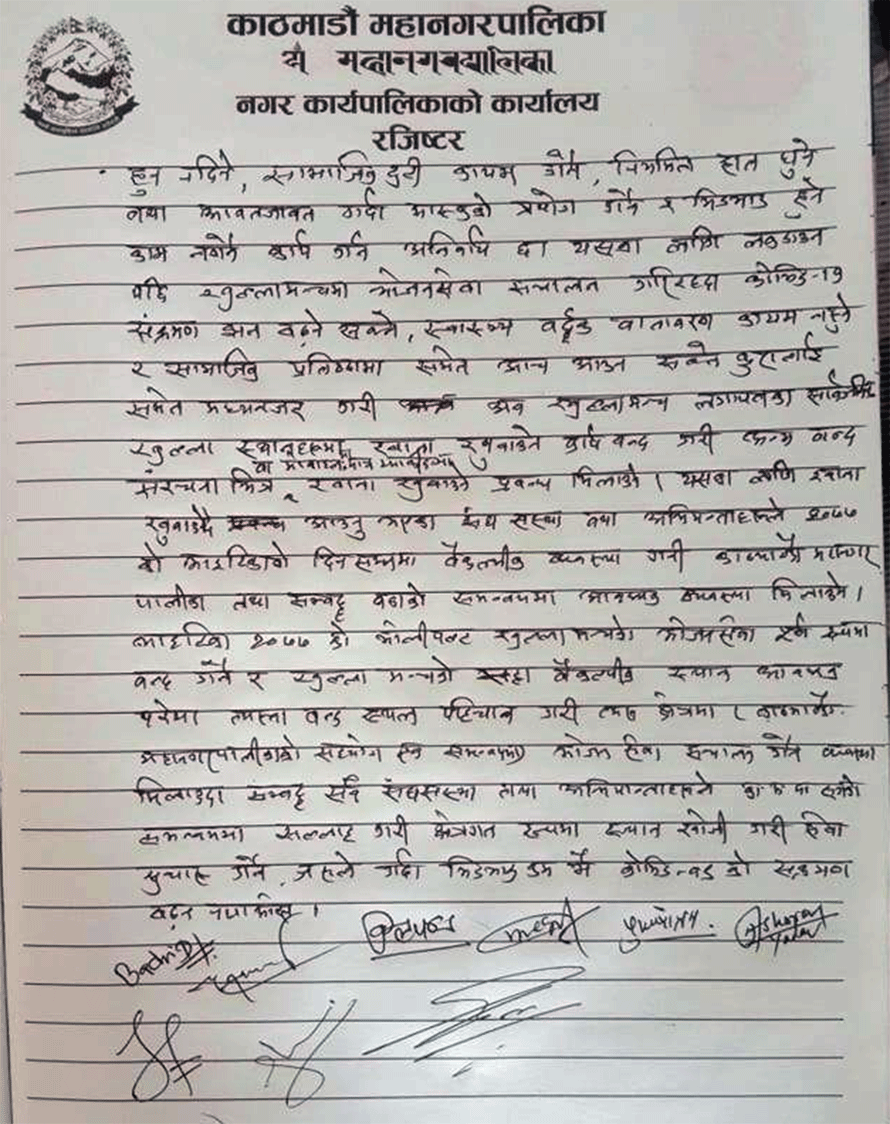 काठमाडौं महानगरपालिका
नगर कार्यपालिकाको कार्यालय
रजिष्टर
हुन नदिने, सामाजिक दुरी कायम गर्ने, नियमित हात धुने
तथा आवतजावत गर्दा मास्कको प्रयोग गर्ने र भिडभाड हुने
काम नगर्ने कार्य गर्न अनिवार्य छ। यसका लागि लकडाउन
पछि खुल्लामञ्चमा भोजनसेवा संचालन गरिरहदा कोभिड-१९
संक्रमण झन बढ्ने सक्ने, स्वास्थ्य वर्द्धक वातावरण कायम नहुने
र सामाजिक प्रतिष्ठामा समेत आंच आउन सक्ने कुरालाई
समेत मध्यनजर गरी अब खुल्लामञ्च लगायतका सार्वजनिक
खुल्ला स्थानहरूमा खाना खुवाउने कार्य बन्द गरी अन्य बन्द
संरचना भित्र खाना खुवाउने प्रबन्ध मिलाउने। यसका लागि खाना
खुवाउदै आउनु भएका संघ संस्था तथा अभियन्ताहरूले २०७७
को भाइटिकाको दिन सम्ममा वैकल्पीक व्यवस्था गरी काठमाडौं महानगर
पालीका तथा सम्बद्ध वडाको समन्वयमा आवश्यक व्यवस्था मिलाउने।
भाइटिका २०७७ को भोलीपल्ट खुल्ला मञ्चको भोजनसेवा पूर्ण रूपमा
बन्द गर्ने र खुल्ला मञ्चको सट्टा वैकल्पीक स्थान आवश्यक
परेमा त्यस्ता बन्द स्थल पहिचान गरी त्यस क्षेत्रमा (काठमाडौं
महानगरपालीकाको सहयोग एवं समन्वयमा) भोजन सेवा संचालन गर्ने व्यवस्था
मिलाउदा सम्बद्ध सबै संघसंस्था तथा अभियान्ताहरूले का.म.पा संगको
समन्वयमा सल्लाह गरी क्षेत्रगत रूपमा स्थान खोजी गरी सेवा
सुचारु गर्ने, जसले गर्दा भिडभाड कम भै कोभिड-१९ को संक्रमण
बढ्न नपाओस्।